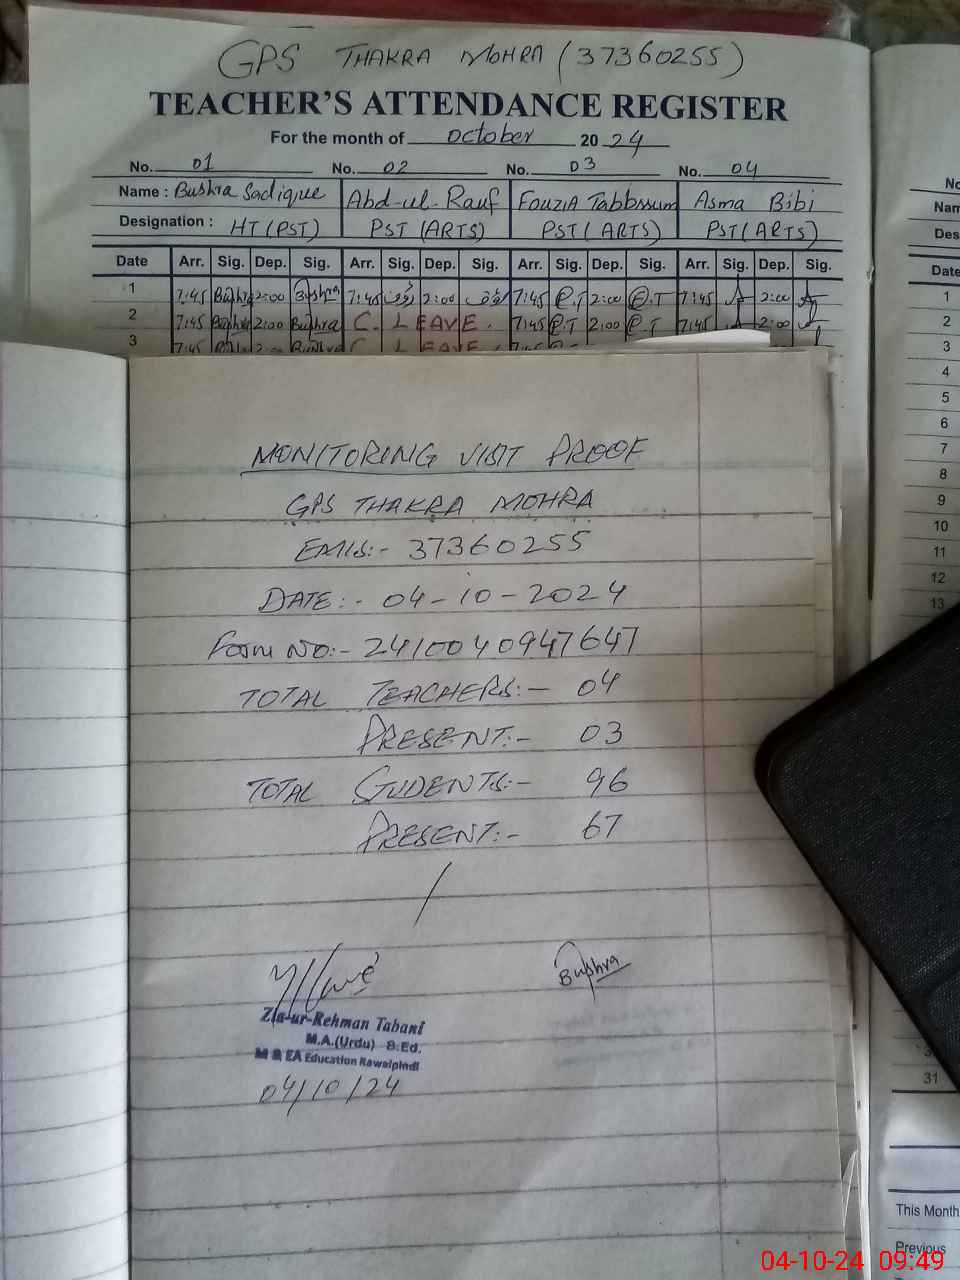 GPS THAKRA MOHRA (37360255)
TEACHER'S ATTENDANCE REGISTER
For the month of October 2024
No. 01 No. 02 No. 03 No. 04
Name : Bushra Sadique Abd-ul-Rauf Fouzia Tabbssum Asma Bibi
Designation : HT (PST) PST (ARTS) PST (ARTS) PST (ARTS)
Date Arr. Sig. Dep. Sig. Arr. Sig. Dep. Sig. Arr. Sig. Dep. Sig. Arr. Sig. Dep. Sig.
1 7:45 Bushra 2:00 Bushra 7:45 رؤف 2:00 رؤف 7:45 F.T 2:00 F.T 7:45 2:00
2 7:45 Bushra 2:00 Bushra C. LEAVE. 7:45 F.T 2:00 F.T 7:45 2:00
3 7:45 2:00 Bushra C LEAVE. 7:45
MONITORING VISIT PROOF
GPS THAKRA MOHRA
EMIS:- 37360255
DATE:- 04-10-2024
Form NO:- 2410040947647
TOTAL TEACHERS:- 04
PRESENT:- 03
TOTAL STUDENTS:- 96
PRESENT:- 67
Bushra
Zia-ur-Rehman Tabani
M.A.(Urdu) B.Ed.
M & EA Education Rawalpindi
04/10/24
No
Nam
Des
Date
1
2
3
4
5
6
7
8
9
10
11
12
13
31
This Month
Previous
04-10-24 09:49